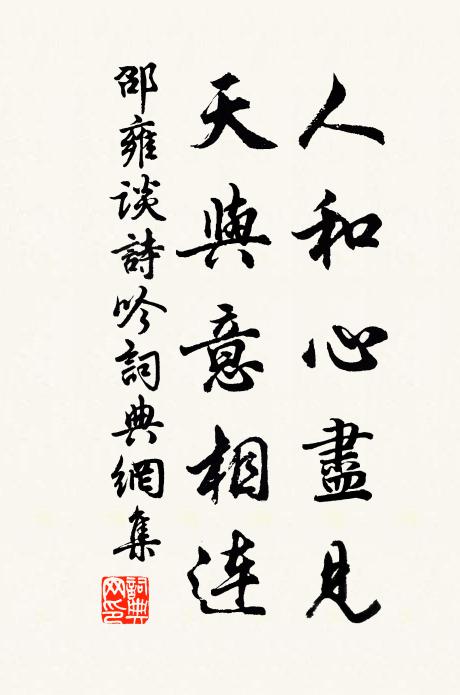 人和心盡見
天與意相連
邵雍談詩吟詞典網集
詞典網印